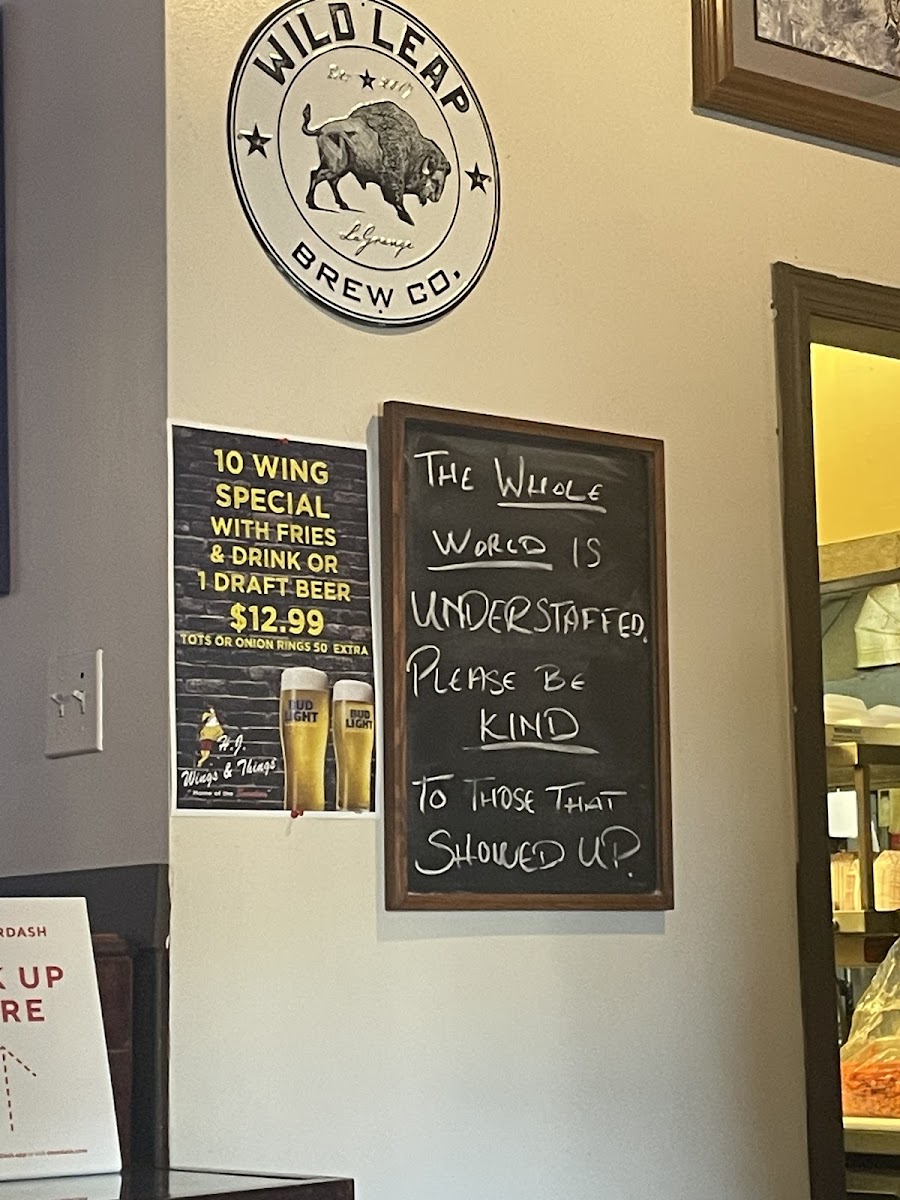 WILD LEAP
LaGrange
BREW CO.
10 WING
SPECIAL
WITH FRIES
& DRINK OR
1 DRAFT BEER
$12.99
TOTS OR ONION RINGS 50 EXTRA
BUD
LIGHT
BUD
LIGHT
H.J.
Wings & Things
"Home of the
THE WHOLE
WORLD IS
UNDERSTAFFED.
PLEASE BE
KIND
TO THOSE THAT
SHOWED UP.
RDASH
K UP
RE